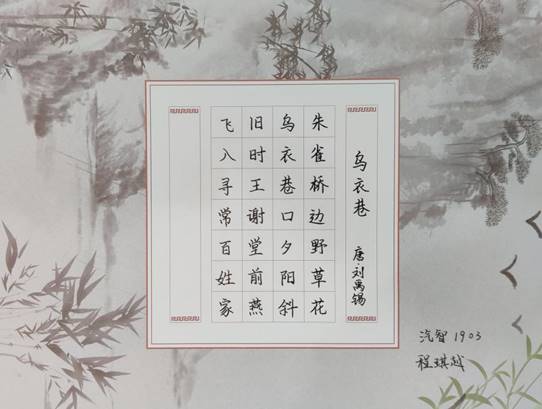 乌衣巷
唐·刘禹锡
朱雀桥边野草花
乌衣巷口夕阳斜
旧时王谢堂前燕
飞入寻常百姓家
汽智1903
程琪越